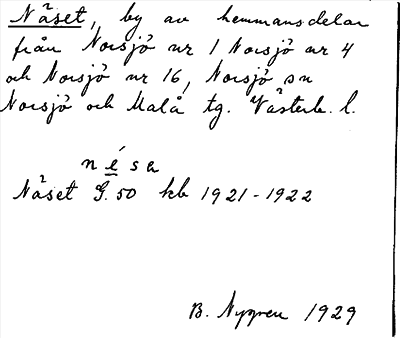 Näset, by av hemmansdelar
från Norsjö nr 1 Norsjö nr 4
och Norsjö nr 16, Norsjö sn
Norsjö och Malå tg. Västerb. l.
nésa
Näset G. 50 kb 1921-1922
B. Nygren 1929